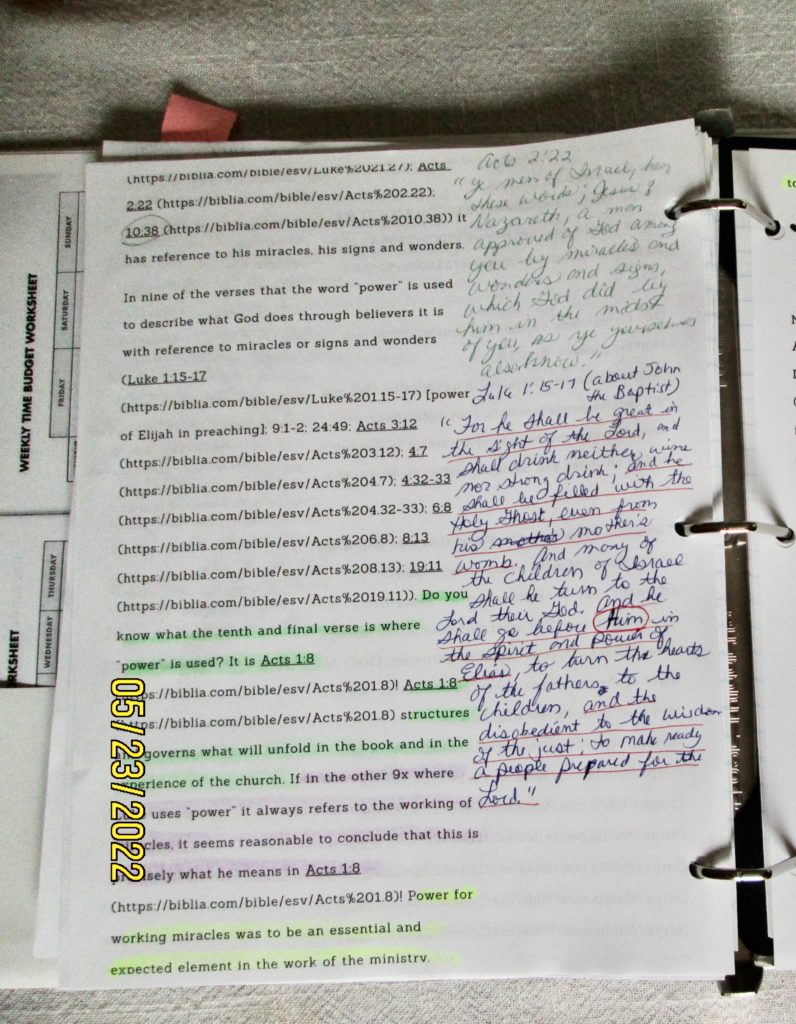 (https://biblia.com/bible/esv/Luke%2021.27); Acts
2:22 (https://biblia.com/bible/esv/Acts%202.22);
10:38 (https://biblia.com/bible/esv/Acts%2010.38)) it
has reference to his miracles, his signs and wonders.
In nine of the verses that the word "power" is used
to describe what God does through believers it is
with reference to miracles or signs and wonders
(Luke 1:15-17
(https://biblia.com/bible/esv/Luke%201.15-17) [power
of Elijah in preaching]; 9:1-2; 24:49; Acts 3:12
(https://biblia.com/bible/esv/Acts%203.12); 4:7
(https://biblia.com/bible/esv/Acts%204.7); 4:32-33
(https://biblia.com/bible/esv/Acts%204.32-33); 6:8
(https://biblia.com/bible/esv/Acts%206.8); 8:13
(https://biblia.com/bible/esv/Acts%208.13); 19:11
(https://biblia.com/bible/esv/Acts%2019.11)). Do you
know what the tenth and final verse is where
"power" is used? It is Acts 1:8
(https://biblia.com/bible/esv/Acts%201.8)! Acts 1:8
(https://biblia.com/bible/esv/Acts%201.8) structures
governs what will unfold in the book and in the
experience of the church. If in the other 9x where
uses "power" it always refers to the working of
it seems reasonable to conclude that this is
what he means in Acts 1:8
(https://biblia.com/bible/esv/Acts%201.8)! Power for
working miracles was to be an essential and
expected element in the work of the ministry.
Acts 2:22
"Ye men of Israel, hear
these words; Jesus of
Nazareth, a man
approved of God among
you by miracles and
wonders and signs,
which God did by
him in the midst
of you, as ye yourselves
also know."
Luke 1:15-17 (about John
the Baptist)
"For he shall be great in
the sight of the Lord, and
shall drink neither wine
nor strong drink; and he
shall be filled with the
Holy Ghost, even from
his mother's
womb. And many of
the children of Israel
shall he turn to the
Lord their God. And he
shall go before Him in
the Spirit and Power of
Elias, to turn the hearts
of the fathers to the
children, and the
disobedient to the wisdom
of the just; to make ready
a people prepared for the
Lord."
WEEKLY TIME BUDGET WORKSHEET
SUNDAY
SATURDAY
FRIDAY
THURSDAY
WEDNESDAY
RKSHEET
to
05/23/2022